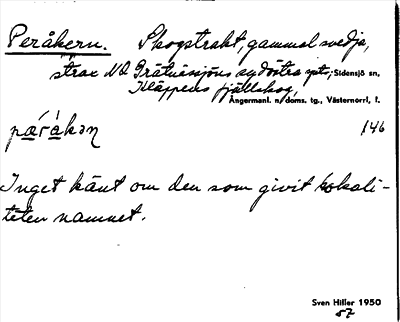 Peråkern. Skogstrakt, gammal svedja,
strax NO Gråtnässjöns sydöstra spets, Sidensjö sn,
Kläppens fjällskog,
Ångermanl. n. doms. tg., Västernorrl. l.
146
Inget känt om den som givit lokali-
teten namnet.
Sven Hiller 1950
57